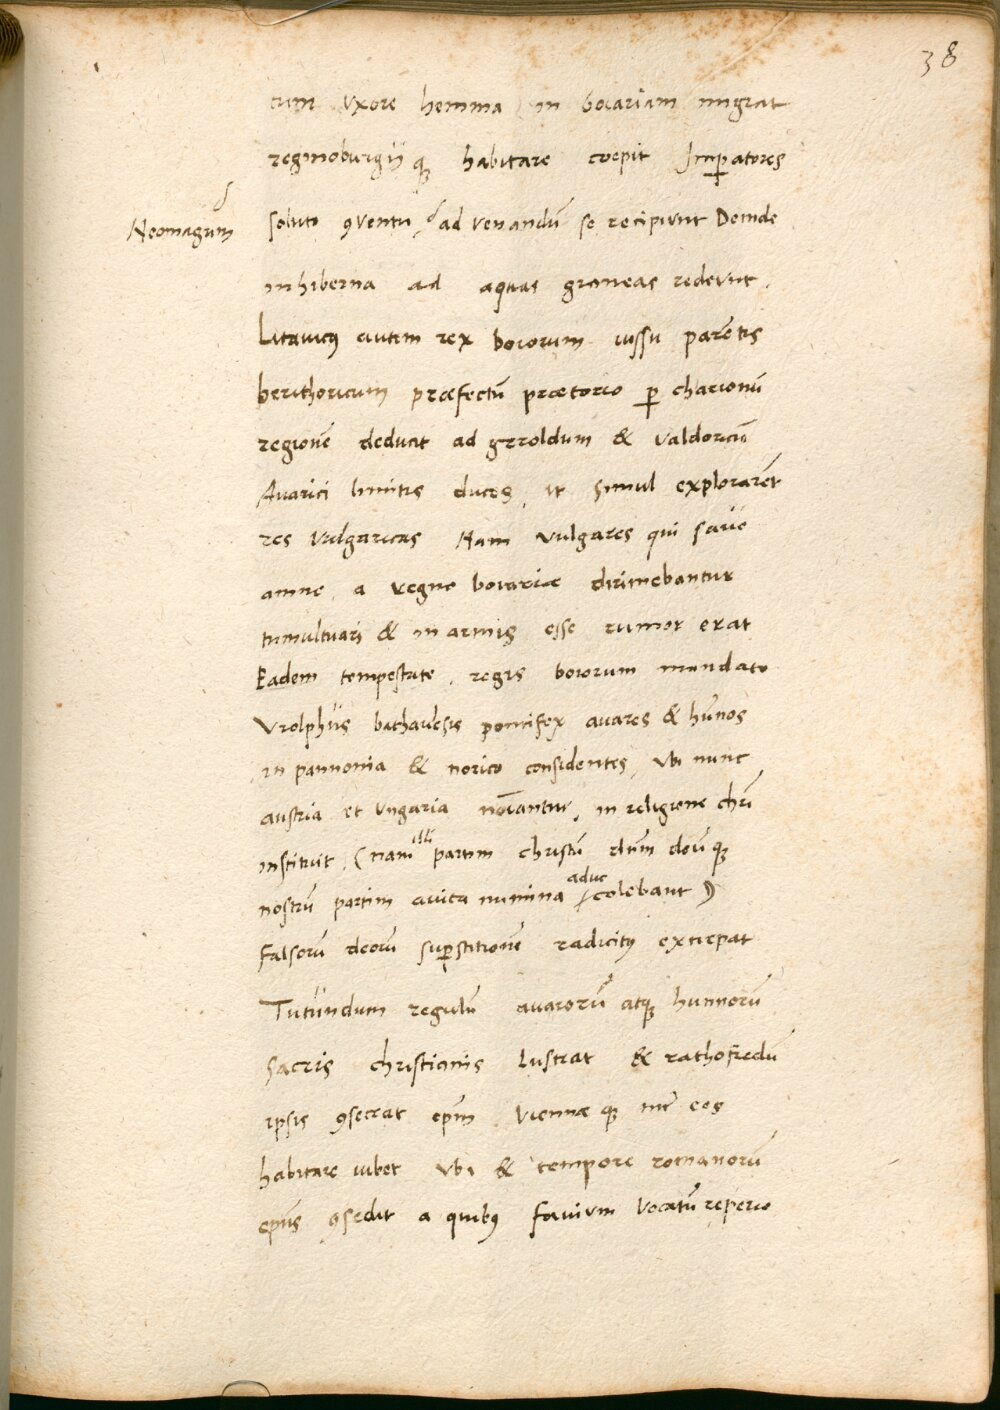 38
cum uxore hemma in boiariam migrat
reginoburgii qȝ habitare coepit Imꝑatores
Neomagum
soluto ꝯventu, ad venandū se recipiunt Deinde
in hiberna ad aquas graneas redeunt.
Litavicꝰ autem rex boiorum iussu parētis
berithoricum præfectū prætorio ꝑ charionū
regionē deducit ad geroldum & valdoricū
Avarici limitis duces, ut simul explorarēt
res vulgaricas Nam vulgares qui savo
amne, a regno boiariæ dirimebantur
tumultuari & in armis esse rumor erat
Eadem tempestate, regis boiorum mandato
Vrolphus bathavēsis pontifex avares & hūnos
in pannonia & norico considentes, ubi nunc
austria et ungaria noīantur, in religione chrī
instituit, (nam illi partim christū dīum deū qȝ
nostrū partim avita numina aduc colebant)
falsorū deorū suꝑstitionē radicitꝰ extirpat
Tutundum regulū avarorū atqȝ hunnorū
sacris christianis lustrat & rathofredū
ipsis ꝯsecrat epīm viennæ qȝ int̄ eos
habitare iubet ubi & tempore romanorū
epūs ꝯsedit a quibꝰ favium vocatū reperio